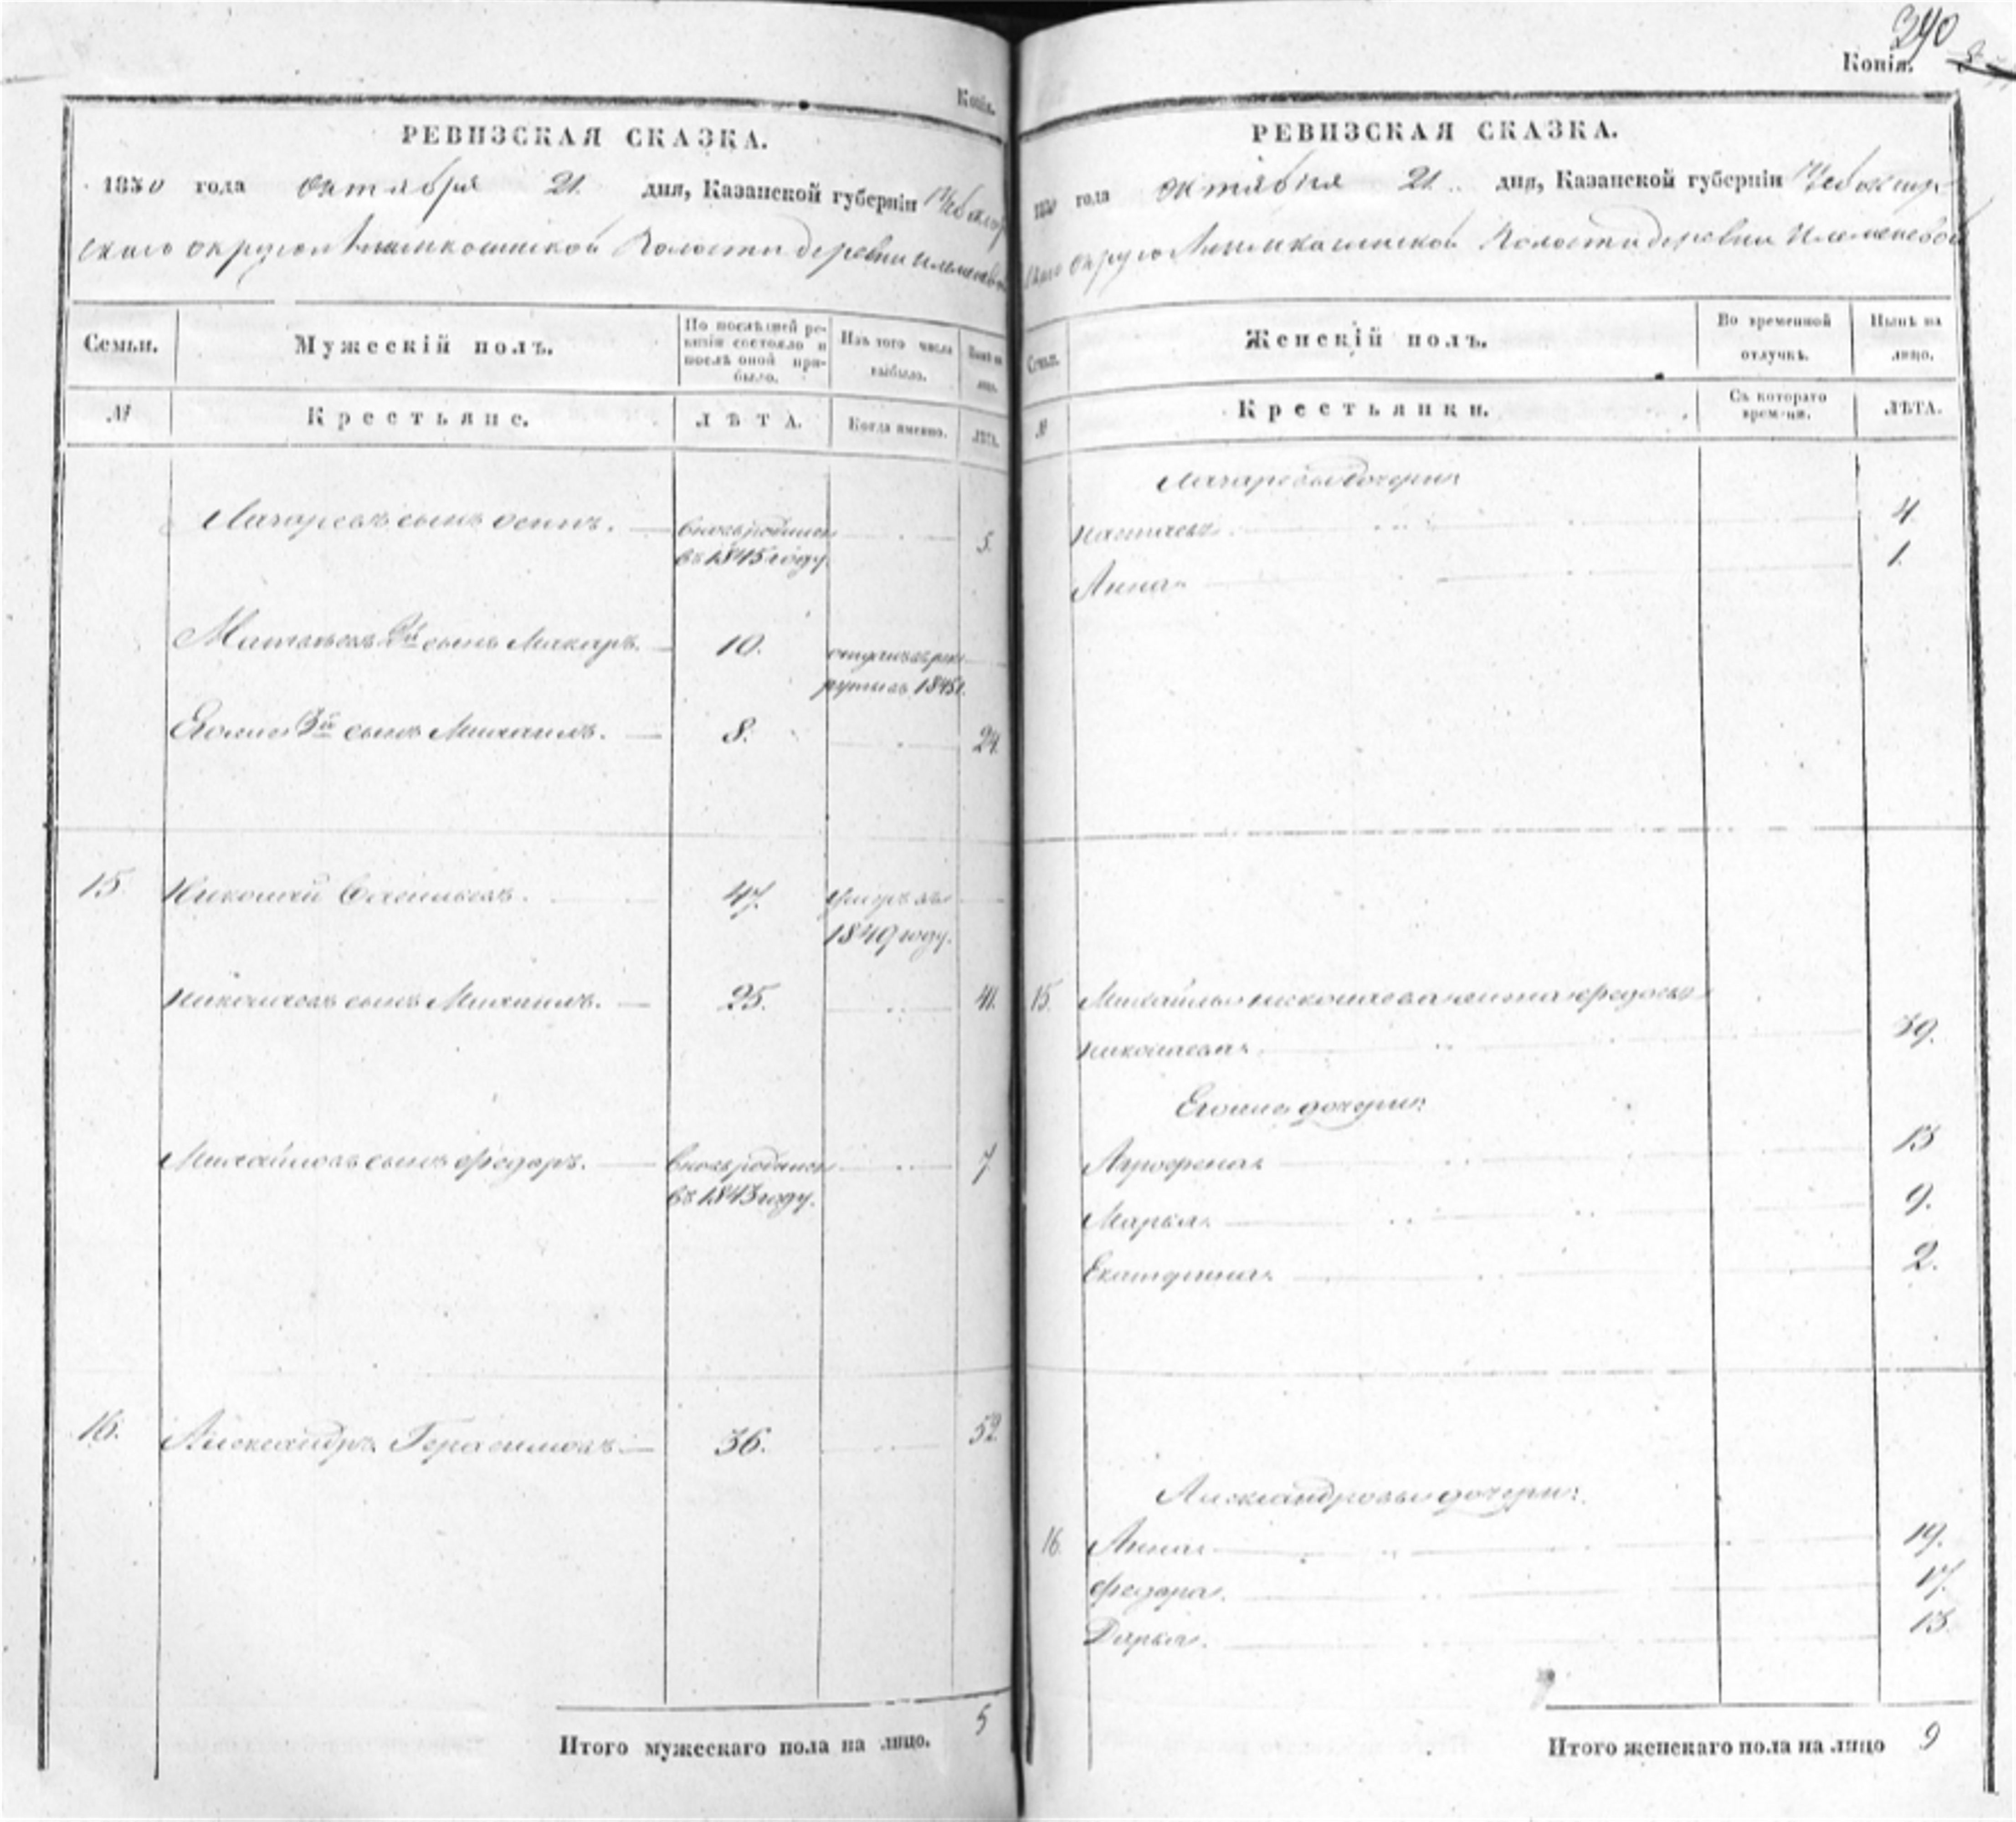 Копія.
РЕВИЗСКАЯ СКАЗКА.
1850 года Октября 21. дня, Казанской губерніи Чебоксар
скаго округа Волости деревни
Семьи.
Мужескій полъ.
По послѣдней ре-
визіи состояло и
послѣ оной при-
было.
Изъ того числа
выбыло.
Нынѣ на
лицо.
№
Крестьяне.
ЛѢТА.
Когда именно.
ЛѢТА.
Лазаревъ сынъ Осипъ. вновь рожденъ 5.
въ 1845 году.
Матвѣевъ 2й сынъ Макаръ. 10. отданъ въ рек
руты въ 1845г.
Его 3й сынъ Михаилъ. 8. 24.
15. Николай Васильевъ. 47. умеръ въ
1849 году.
Николаевъ сынъ Михаилъ. 25. 41.
Михайловъ сынъ Федоръ. вновь рожденъ 7
въ 1843 году.
16. Александръ Герасимовъ 36. 52.
Итого мужескаго пола на лицо. 5
290
Копія.
РЕВИЗСКАЯ СКАЗКА.
1850 года Октября 21. дня, Казанской губерніи Чебоксар
скаго округа Волости деревни
Семьи.
Женскій полъ.
Во временной
отлучкѣ.
Нынѣ на
лицо.
№
Крестьянки.
Съ котораго
времени.
ЛѢТА.
Лазаревы дочери:
4.
Анна 1.
15. Михайлы Николаева жена Федосья
Николаева. 39.
Его дочери:
Агрофена 13
Марья. 9.
Екатерина. 2.
Александровы дочери:
16. Анна 19.
Федора. 17.
Дарья. 13.
Итого женскаго пола на лицо 9